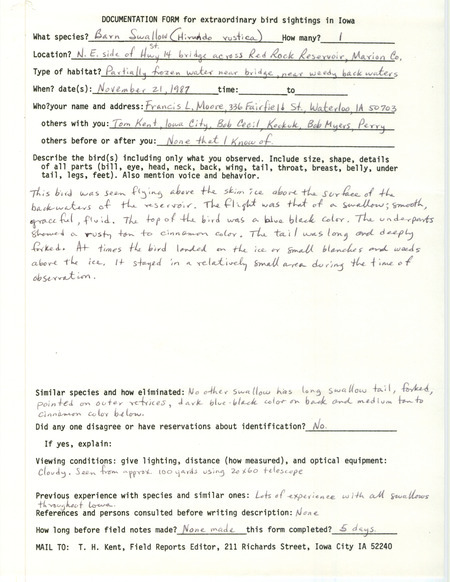 DOCUMENTATION FORM for extraordinary bird sightings in Iowa
What species? Barn Swallow (Hirundo rustica) How many? 1
Location? N.E. side of Hwy St. 14 bridge across Red Rock Reservoir, Marion Co.
Type of habitat? Partially frozen water near bridge, near weedy backwaters
When? date(s): November 21, 1987 time: to
Who? your name and address: Francis L. Moore, 336 Fairfield St., Waterloo, IA 50703
others with you: Tom Kent, Iowa City, Bob Cecil, Keokuk, Bob Myers, Perry
others before or after you: None that I know of.
Describe the bird(s) including only what you observed. Include size, shape, details
of all parts (bill, eye, head, neck, back, wing, tail, throat, breast, belly, under
tail, legs, feet). Also mention voice and behavior.
This bird was seen flying above the skim ice above the surface of the
backwaters of the reservoir. The flight was that of a swallow; smooth,
graceful, fluid. The top of the bird was a blue black color. The underparts
showed a rusty tan to cinnamon color. The tail was long and deeply
forked. At times the bird landed on the ice or small branches and weeds
above the ice. It stayed in a relatively small area during the time of
observation.
Similar species and how eliminated: No other swallow has long swallow tail, forked,
pointed on outer retrices, dark blue-black color on back and medium tan to
cinnamon color below.
Did any one disagree or have reservations about identification? No.
If yes, explain:
Viewing conditions: give lighting, distance (how measured), and optical equipment:
Cloudy. Seen from approx. 100 yards using 20x60 telescope
Previous experience with species and similar ones: Lots of experience with all swallows
throughout Iowa.
References and persons consulted before writing description: None
How long before field notes made? None made this form completed? 5 days.
MAIL TO: T. H. Kent, Field Reports Editor, 211 Richards Street, Iowa City IA 52240